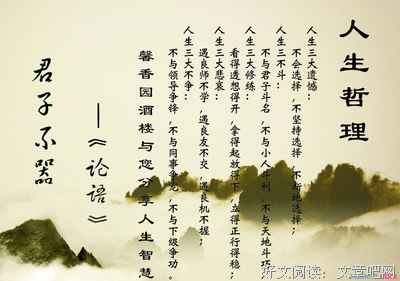 人生哲理
人生三大遗憾：
不会选择，不坚持选择，不断地选择；
人生三不斗：
不与君子斗名，不与小人斗利，不与天地斗巧。
人生三大修练：
看得透想得开，拿得起放得下，立得正行得稳；
人生三大悲哀：
遇良师不学，遇良友不交，遇良机不握；
人生三大不争：
不与领导争锋，不与同事争宠，不与下级争功。
馨香园酒楼与您分享人生智慧
——《论语》
君子不器
好文阅读：文章吧网